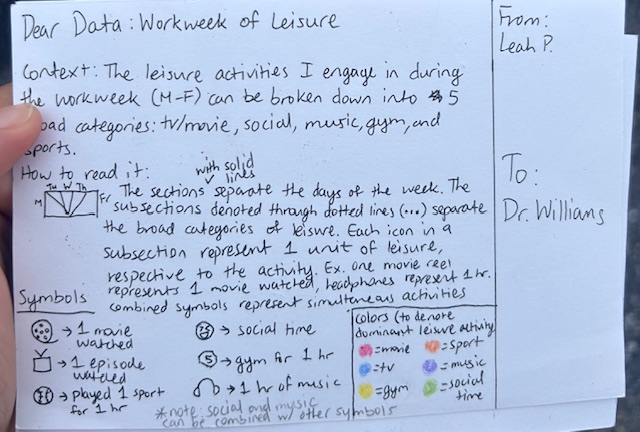 Dear Data: Workweek of Leisure
Context: The leisure activities I engage in during
the workweek (M-F) can be broken down into 5
broad categories: tv/movie, social, music, gym, and
sports.
How to read it:
with solid
lines
M Tu W Th Fr
The sections separate the days of the week. The
subsections denoted through dotted lines (...) separate
the broad categories of leisure. Each icon in a
subsection represent 1 unit of leisure,
respective to the activity. Ex. one movie reel
represents 1 movie watched, headphones represent 1 hr.
combined symbols represent simultaneous activities
Symbols
→ 1 movie
watched
→ 1 episode
watched
→ played 1 sport
for 1 hr
→ social time
→ gym for 1 hr
→ 1 hr of music
*note: social and music
can be combined w/ other symbols
colors (to denote
dominant leisure activity
=movie
=tv
=gym
=sport
=music
=social
time
From:
Leah P.
To:
Dr. Williams